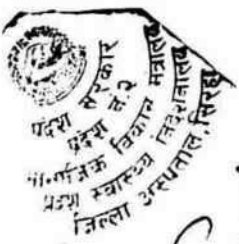 प्रदेश सरकार
प्रदेश नं. २
सामाजिक विकास मन्त्रालय
प्रदेश स्वास्थ्य निर्देशनालय
जिल्ला अस्पताल, सिरहा